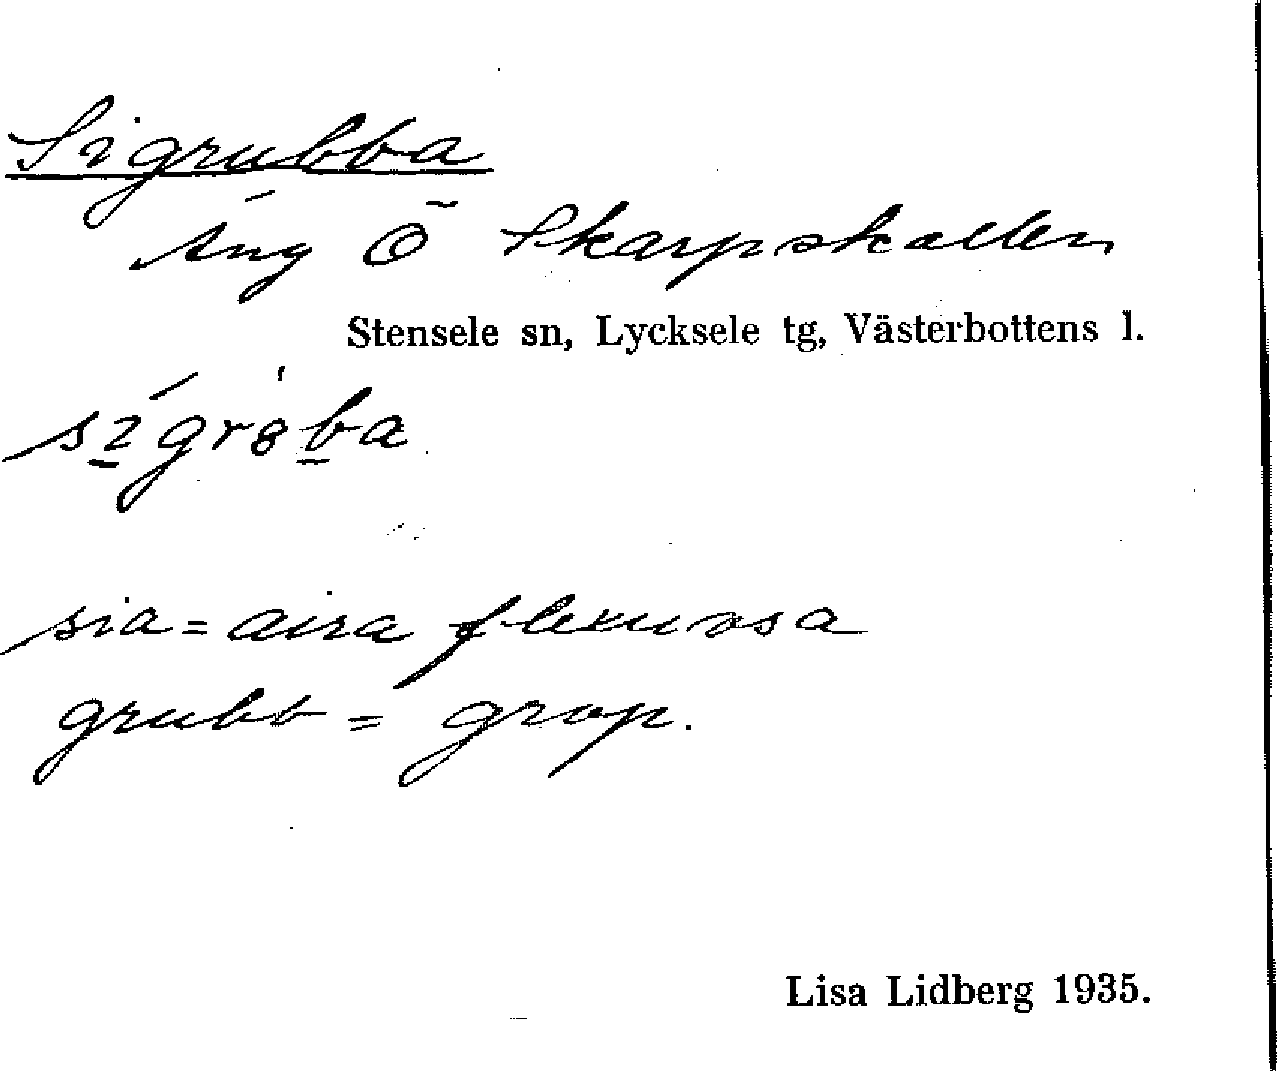 Sigrubba
äng Ö Skarpskallen
Stensele sn, Lycksele tg, Västerbottens l.
sia = aira flexuosa
grubb = grop.
Lisa Lidberg 1935.